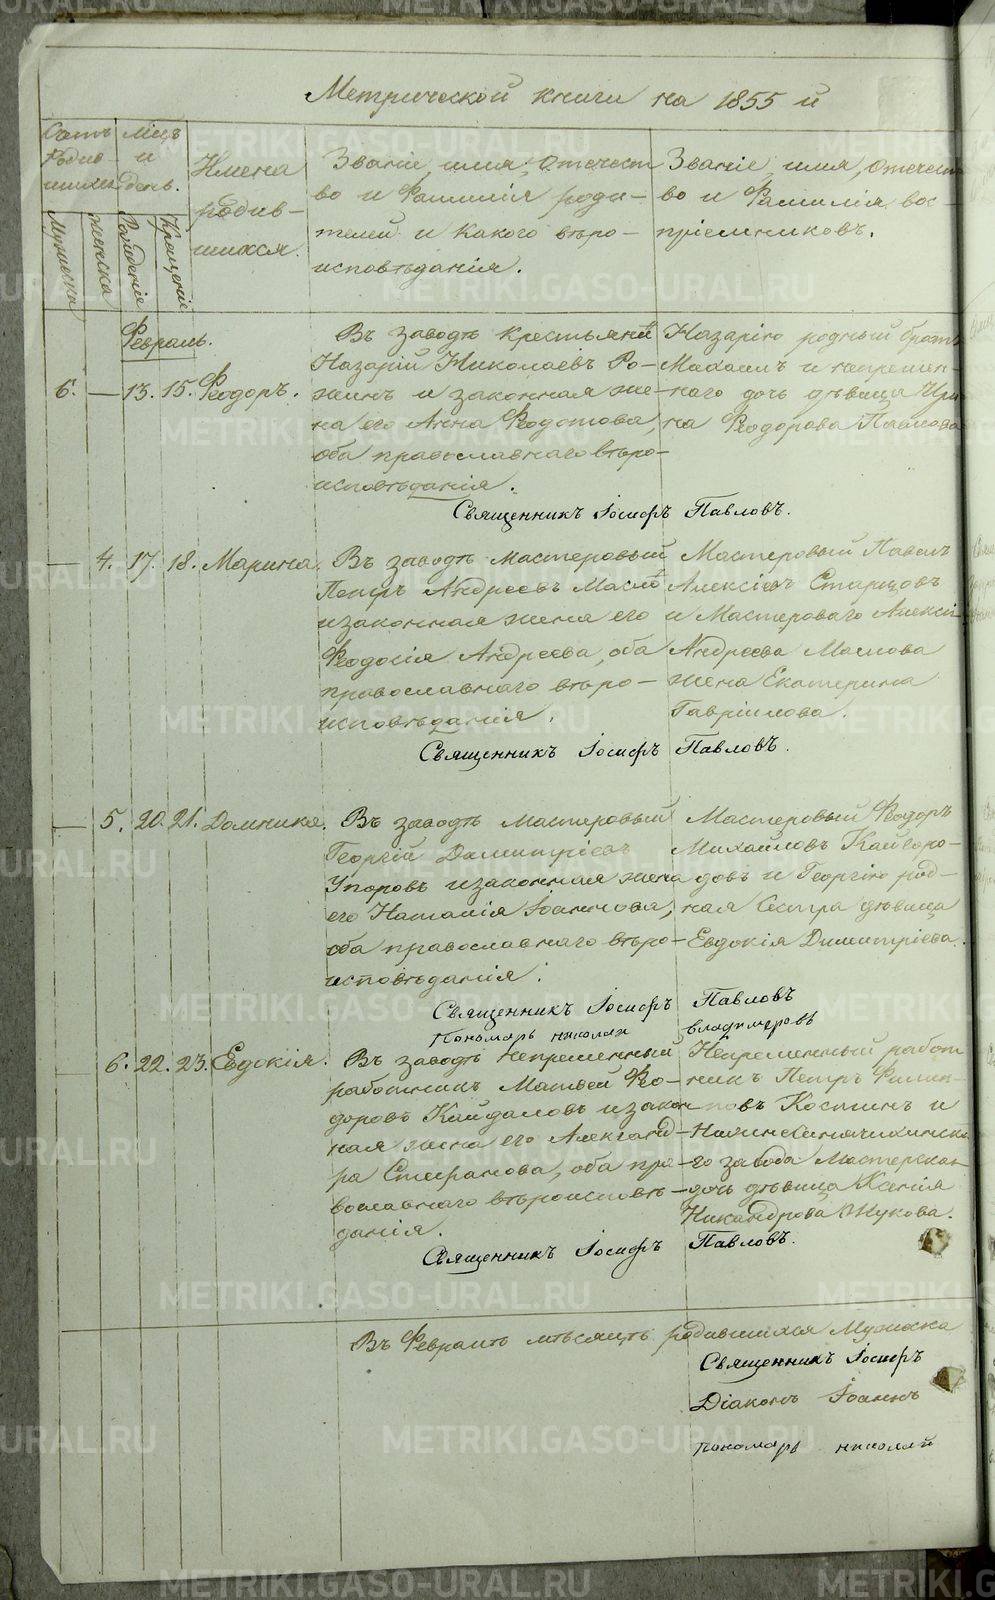 Метрической книги на 1855 й
Счетъ родившихся
Мѣсяцъ и день.
Имена родившихся.
Званіе, имя, отечество и Фамилія родителей и какого вѣроисповѣданія.
Званіе, имя, отечество и Фамилія воспріемниковъ.
Мужеска
женска
Рожденія
Крещенія
Февраль.
6. — 13. 15. Ѳеодоръ.
Въ заводѣ крестьянинъ
Назарій Николаевъ Ро-
жинъ и законная же-
на его Анна Ѳедотова,
оба православнаго вѣро-
исповѣданія.
Назарію родный братъ
Михаилъ и непремен-
наго дочь дѣвица Ири-
на Ѳеодорова Павлова
Священникъ Іосифъ Павловъ.
— 4. 17. 18. Марина.
Въ заводѣ мастеровый
Петръ Андреевъ Масл
и законная жена его
Ѳеодосія Андреева, оба
православнаго вѣро-
исповѣданія.
Мастеровый Павелъ
Алексіевъ Старцовъ
и Мастероваго Алексія
Андреева Маслова
жена Екатерина
Гавріилова.
Священникъ Іосифъ Павловъ.
— 5. 20. 21. Домника.
Въ заводѣ мастеровый
Георгій Димитріевъ
Упоровъ и законная жена
его Наталія Іоаннова,
оба православнаго вѣро-
исповѣданія.
Мастеровый Ѳеодоръ
Михайловъ Кайгоро-
довъ и Георгію род-
ная Сестра дѣвица
Евдокія Димитріева.
Священникъ Іосифъ Павловъ
Пономарь николай владимеровъ
6. 22. 23. Евдокія.
Въ заводѣ непременный
работникъ Матвей Ѳео-
доровъ Кайдаловъ и закон-
ная жена его Александ-
ра Стефанова, оба пра-
вославнаго вѣроисповѣ-
данія.
Непременный работ
никъ Петръ Филип-
повъ Костинъ и
го завода Мастерская
дочь дѣвица Ксенія
Никандрова Жукова.
Священникъ Іосифъ Павловъ.
Въ Февралѣ мѣсяцѣ родившихся Мужеска
Священникъ Іосифъ
Діаконъ Іоаннъ
пономарь николай
METRIKI.GASO-URAL.RU